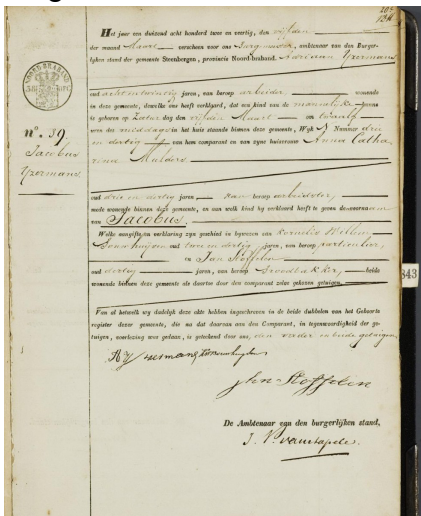 Het jaar een duizend acht honderd twee en veertig, den vijfden
der maand Maart verscheen voor ons Burgemeester, ambtenaar van den Burger-
lijken stand der gemeente Steenbergen, provincie Noord-braband. Adriaan IJzermans
oud achtentwintig jaren, van beroep arbeider, wonende
in deze gemeente, dewelke ons heeft verklaard, dat een kind van de mannelijke geboren
is geboren op Zatur dag den vijfden Maart om twaalf
uren des middags in het huis staande binnen deze gemeente, Wijk J Nummer drie
en dertig van hem comparant en van zyne huisvrouw Anna Catha
rina Mulders
n°. 39
Jacobus
IJzermans.
oud drie en dertig jaren, van beroep arbeidster,
mede wonende binnen deze gemeente, en aan welk kind hij verklaard heeft te geven de voornaam
van Jacobus.
Welke aangifte en verklaring zyn geschied in bywezen van Kornelis Willem
oud twee en dertig jaren, van beroep particulier,
en Jan Stoffelen
oud dertig jaren, van beroep broodbakker, beide
wonende binnen deze gemeente als daartoe door den comparant zelve gekozen getuigen.
Van al hetwelk wy dadelijk deze akte hebben ingeschreven in de beide dubbelen van het Geboorte
register dezer gemeente, die na dat daarvan aan den Comparant, in tegenwoordigheid der ge-
tuigen, voorlezing was gedaan, is geteekend door ons, den vader en beide getuigen
Jhn Stoffelen
De Ambtenaar van den burgerlijken stand,
843